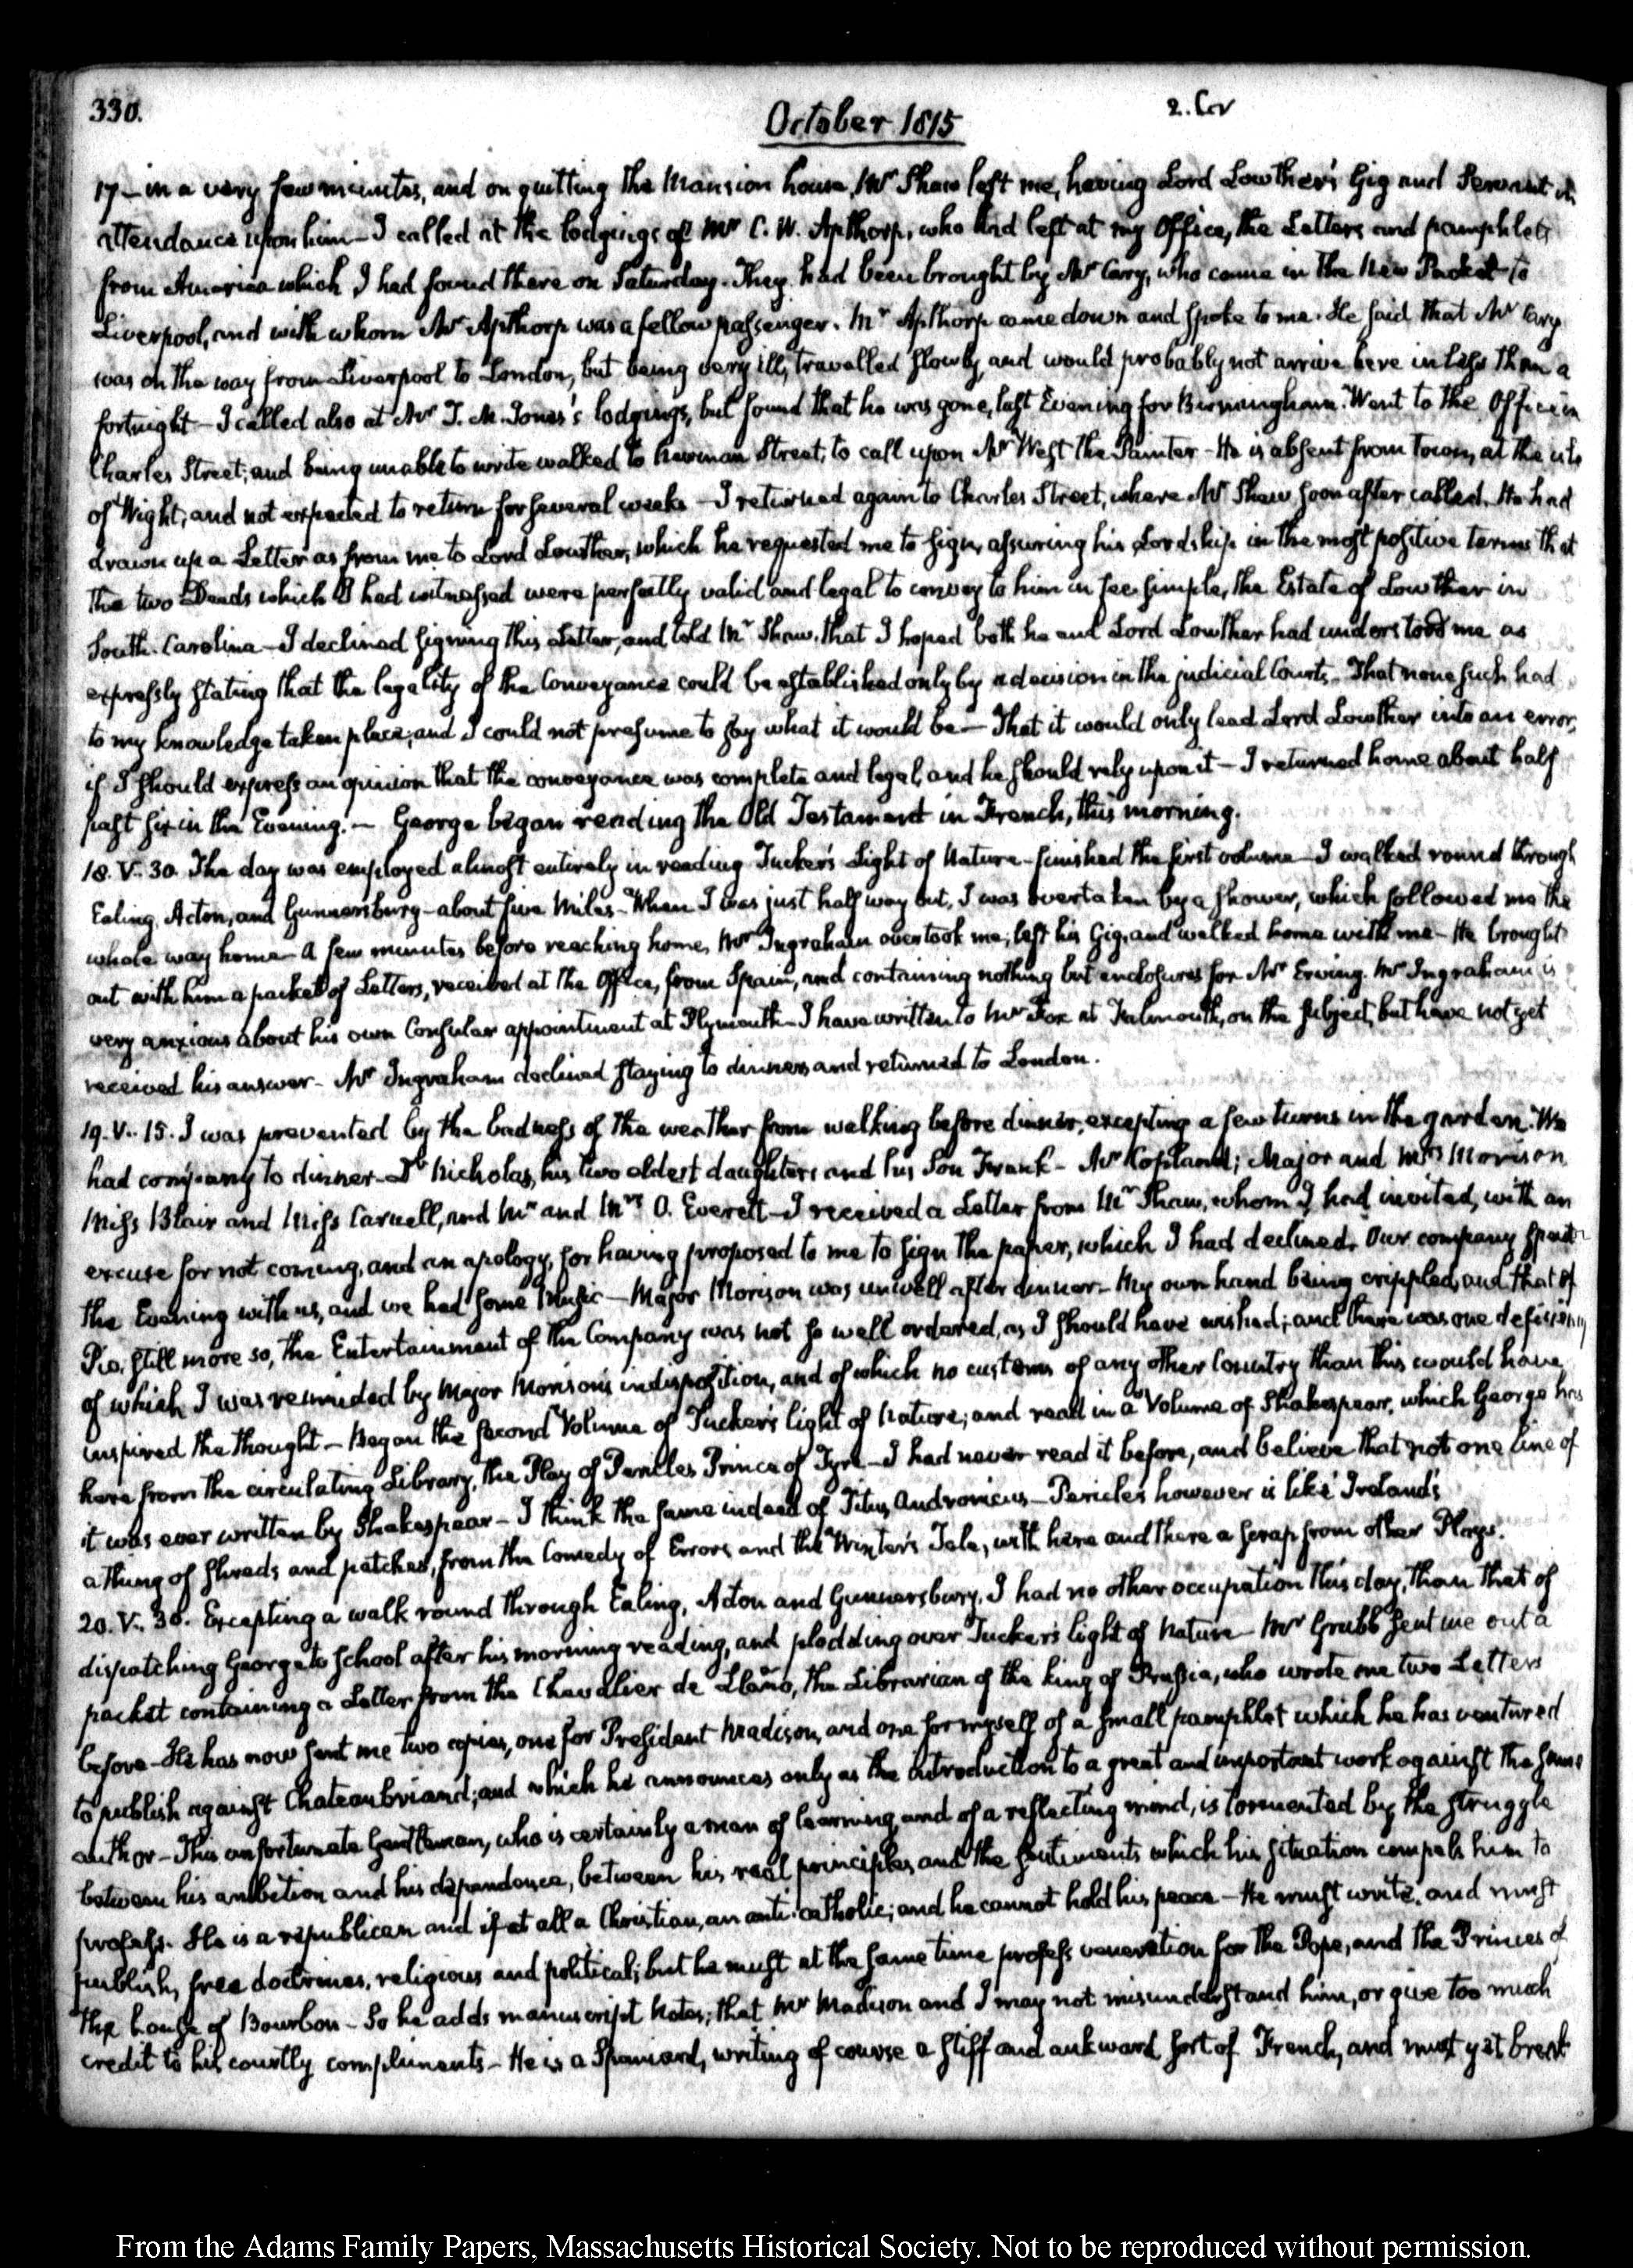 330.
October 1815
2. Cor
17 – in a very few minutes, and on quitting the Mansion house, Mr Shaw left me, having Lord Lowther's Gig and Servant in
attendance upon him – I called at the lodgings of Mr C. W. Apthorp, who had left at my Office, the Letters and pamphlets
from America which I had found there on Saturday. They had been brought by Mr Cary, who came in the New Packet to
Liverpool, and with whom Mr Apthorp was a fellow passenger. Mr Apthorp came down and spoke to me. He said that Mr Cary
was on the way from Liverpool to London, but being very ill, travelled slowly, and would probably not arrive here in less than a
fortnight – I called also at Mr T. M. Jones's lodgings, but found that he was gone, last Evening for Birmingham. Went to the Office in
Charles Street; and being unable to write walked to Newman Street, to call upon Mr West the Painter – He is absent from town, at the isle
of Wight; and not expected to return for several weeks – I returned again to Charles Street, where Mr Shaw soon after called. He had
drawn up a Letter as from me to Lord Lowther, which he requested me to sign, assuring his Lordship in the most positive terms that
the two Deeds which I had witnessed were perfectly valid and legal to convey to him in fee simple, the Estate of Lowther in
South-Carolina – I declined signing this Letter, and told Mr Shaw, that I hoped both he and Lord Lowther had understood me as
expressly stating that the legality of the Conveyance could be established only by a decision in the judicial Courts – That none such had
to my knowledge taken place, and I could not presume to say what it would be – That it would only lead Lord Lowther into an error,
if I should express an opinion that the conveyance was complete and legal, and he should rely upon it – I returned home about half
past six in the Evening. – George began reading the Old Testament in French, this morning.
18. V. 30. The day was employed almost entirely in reading Tucker's Light of Nature – finished the first volume – I walked round through
Ealing, Acton, and Gunnersbury – about five Miles – When I was just half way out, I was overtaken by a shower, which followed me the
whole way home – A few minutes before reaching home, Mr Ingraham overtook me; left his Gig, and walked home with me – He brought
out with him a packet of Letters, received at the Office, from Spain, and containing nothing but enclosures for Mr Erving. Mr Ingraham is
very anxious about his own Consular appointment at Plymouth – I have written to Mr Fox at Falmouth, on the subject, but have not yet
received his answer – Mr Ingraham declined staying to dinner and returned to London.
19. V. 15. I was prevented by the badness of the weather from walking before dinner, excepting a few turns in the garden. We
had company to dinner – Dr Nicholas, his two oldest daughters and his Son Frank – Mr Copland; Major and Mrs Morison
Miss Blair and Miss Carnell, and Mr and Mrs O. Everett – I received a Letter from Mr Shaw, whom I had invited, with an
excuse for not coming, and an apology, for having proposed to me to sign the paper, which I had declined. Our company spent
the Evening with us, and we had some Music – Major Morison was unwell after dinner – My own hand being crippled, and that of
Pio, still more so, the Entertainment of the Company was not so well ordered, as I should have wished; and there was one deficiency
of which I was reminded by Major Morison's indisposition, and of which no customs of any other Country than this would have
inspired the thought – Began the second Volume of Tucker's light of Nature; and read in a Volume of Shakespear, which George has
here from the circulating Library, the Play of Pericles Prince of Tyre – I had never read it before, and believe that not one line of
it was ever written by Shakespear – I think the same indeed of Titus Andronicus – Pericles however is like Ireland's
a thing of shreds and patches, from the Comedy of Errors and the Winter's Tale, with here and there a scrap from other Plays.
20. V. 30. Excepting a walk round through Ealing, Acton and Gunnersbury, I had no other occupation this day, than that of
dispatching George to School after his morning reading, and plodding over Tucker's light of Nature – Mr Grubb sent me out a
packet containing a Letter from the Chevalier de Llano, the Librarian of the king of Prussia, who wrote me two Letters
before – He has now sent me two copies, one for President Madison, and one for myself of a small pamphlet which he has ventured
to publish against Chateaubriand; and which he announces only as the introduction to a great and important work against the same
author – This unfortunate Gentleman, who is certainly a man of learning, and of a reflecting mind, is tormented by the struggle
between his ambition and his dependence, between his real principles, and the sentiments which his situation compels him to
profess. He is a republican and if at all a Christian, an anti-catholic; and he cannot hold his peace – He must write, and must
publish, free doctrines, religious and political; but he must at the same time profess veneration for the Pope, and the Princes of
the house of Bourbon – So he adds manuscript Notes; that Mr Madison and I may not misunderstand him, or give too much
credit to his courtly compliments – He is a Spaniard, writing of course a stiff and aukward sort of French, and must yet break
From the Adams Family Papers, Massachusetts Historical Society. Not to be reproduced without permission.